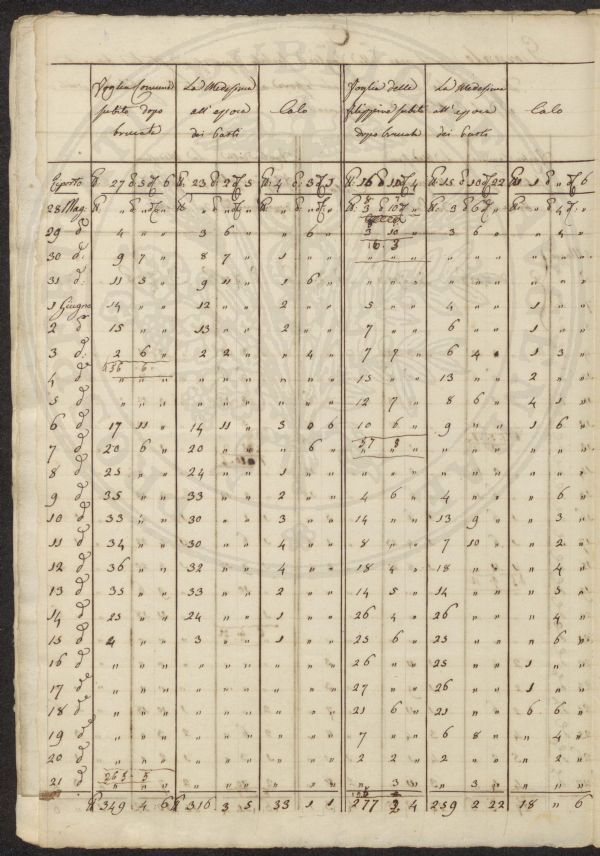 Foglia Comune subito dopo brucata | La Medesima all' epoca dei Pasti | Calo | Foglia delle filippine subito dopo brucata | La Medesima all' epoca dei Pasti | Calo
Riporto 27 5 6 | 23 2 5 | 4 3 1 | 16 10 4 | 15 10 22 | 1 „ 6
28 Mag. „ „ „ | „ „ „ | „ „ „ | 3 10 „ | 3 6 „ | „ 4 „
29 d.º 4 „ „ | 3 6 „ | „ 6 „ | 3 10 „ | 3 6 „ | „ 4 „
16. 3
30 d.º 9 7 „ | 8 7 „ | 1 „ „ | „ „ „ | „ „ „ | „ „ „
31 d.º 11 5 „ | 9 11 „ | 1 6 „ | „ „ „ | „ „ „ | „ „ „
1 Giugno 14 „ „ | 12 „ „ | 2 „ „ | 5 „ „ | 4 „ „ | 1 „ „
2 d.º 15 „ „ | 13 „ „ | 2 „ „ | 7 „ „ | 6 „ „ | 1 „ „
3 d.º 2 6 „ | 2 2 „ | „ 4 „ | 7 7 „ | 6 4 „ | 1 3 „
6.
4 d.º „ „ „ | „ „ „ | „ „ „ | 15 „ „ | 13 „ „ | 2 „ „
5 d.º „ „ „ | „ „ „ | „ „ „ | 12 7 „ | 8 6 „ | 4 1 „
6 d.º 17 11 „ | 14 11 „ | 3 0 6 | 10 6 „ | 9 „ „ | 1 6 „
57 8
7 d.º 20 6 „ | 20 „ „ | „ 6 „ | „ „ „ | „ „ „ | „ „ „
8 d.º 25 „ „ | 24 „ „ | 1 „ „ | „ „ „ | „ „ „ | „ „ „
9 d.º 35 „ „ | 33 „ „ | 2 „ „ | 4 6 „ | 4 „ „ | „ 6 „
10 d.º 33 „ „ | 30 „ „ | 3 „ „ | 14 „ „ | 13 9 „ | „ 3 „
11 d.º 34 „ „ | 30 „ „ | 4 „ „ | 8 „ „ | 7 10 „ | „ 2 „
12 d.º 36 „ „ | 32 „ „ | 4 „ „ | 18 4 „ | 18 „ „ | „ 4 „
13 d.º 35 „ „ | 33 „ „ | 2 „ „ | 14 5 „ | 14 „ „ | „ 5 „
14 d.º 25 „ „ | 24 „ „ | 1 „ „ | 26 4 „ | 26 „ „ | „ 4 „
15 d.º 4 „ „ | 3 „ „ | 1 „ „ | 25 6 „ | 25 „ „ | „ 6 „
16 d.º „ „ „ | „ „ „ | „ „ „ | 26 „ „ | 25 „ „ | 1 „ „
17 d.º „ „ „ | „ „ „ | „ „ „ | 27 „ „ | 26 „ „ | 1 „ „
18 d.º „ „ „ | „ „ „ | „ „ „ | 21 6 „ | 21 „ „ | 6 6 „
19 d.º „ „ „ | „ „ „ | „ „ „ | 7 „ „ | 6 8 „ | „ 4 „
20 d.º „ „ „ | „ „ „ | „ „ „ | 2 2 „ | 2 „ „ | „ 2 „
265. 5
21 d.º „ „ „ | „ „ „ | „ „ „ | „ 3 „ | „ 3 „ | „ „ „
349 4 6 | 316 3 5 | 33 1 1 | 277 2 4 | 259 2 22 | 18 „ 6